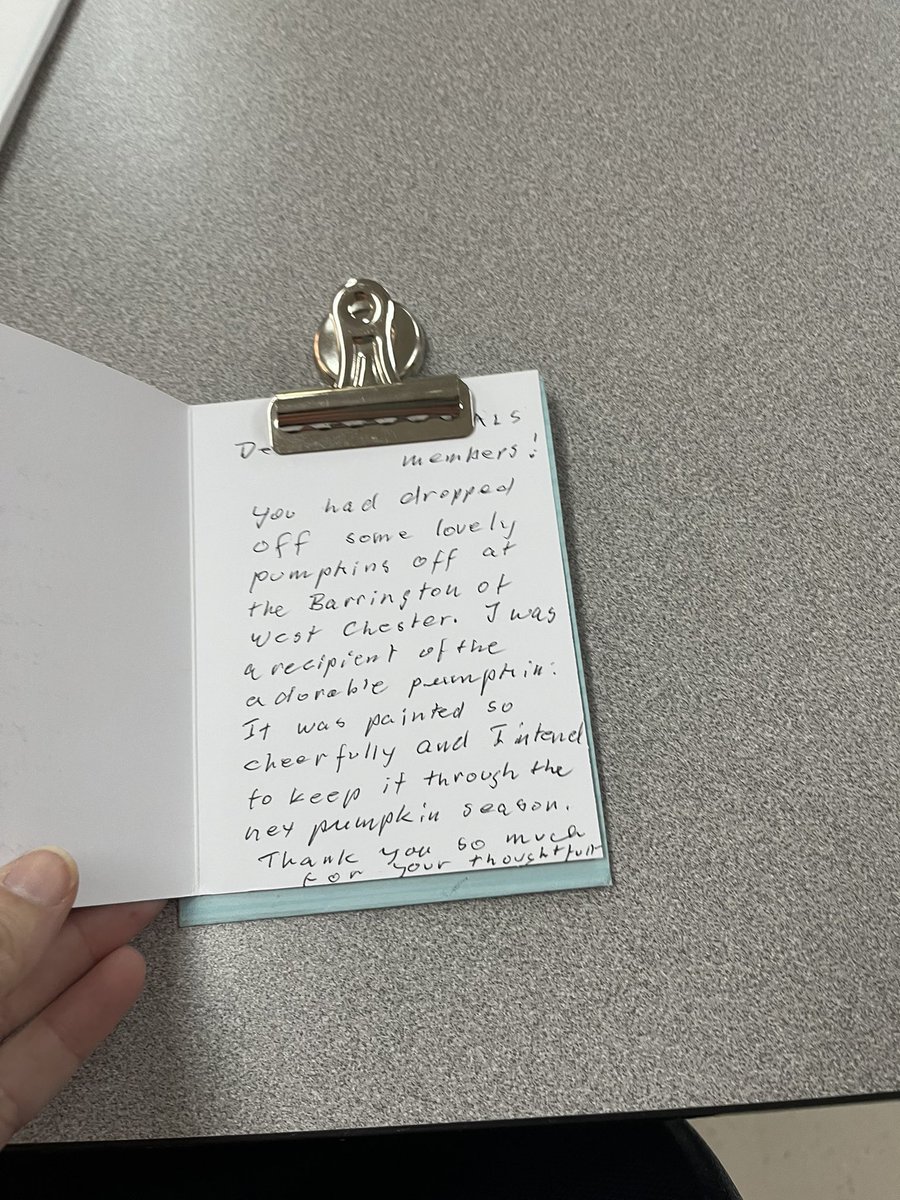 ALS
members!
You had dropped
off some lovely
pumpkins off at
the Barrington of
West Chester. I was
a recipient of the
adorable pumpkin.
It was painted so
cheerfully and I intend
to keep it through the
nex pumpkin season.
Thank you so much
for your thoughtfull